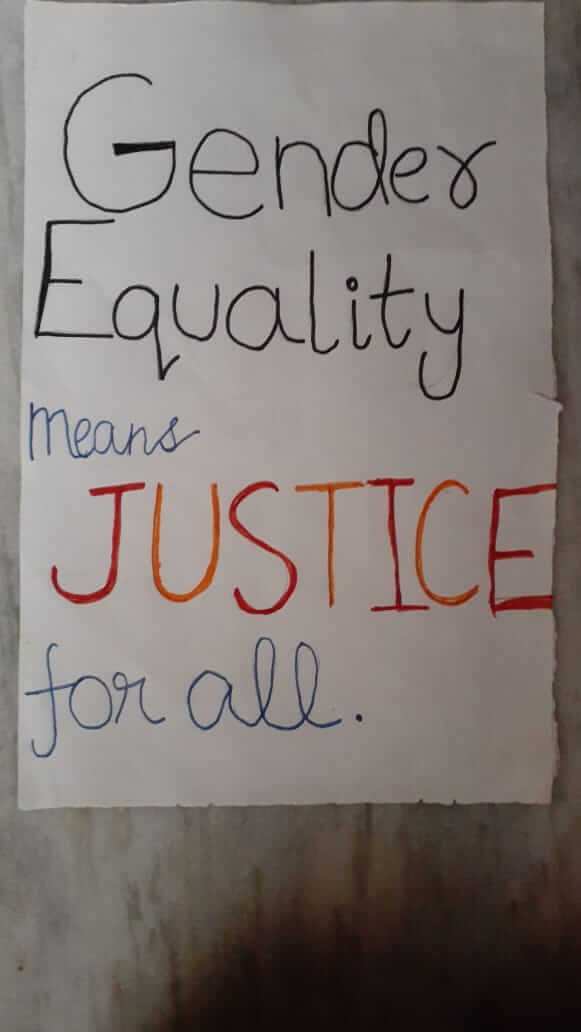 Gender
Equality
means
JUSTICE
for all.